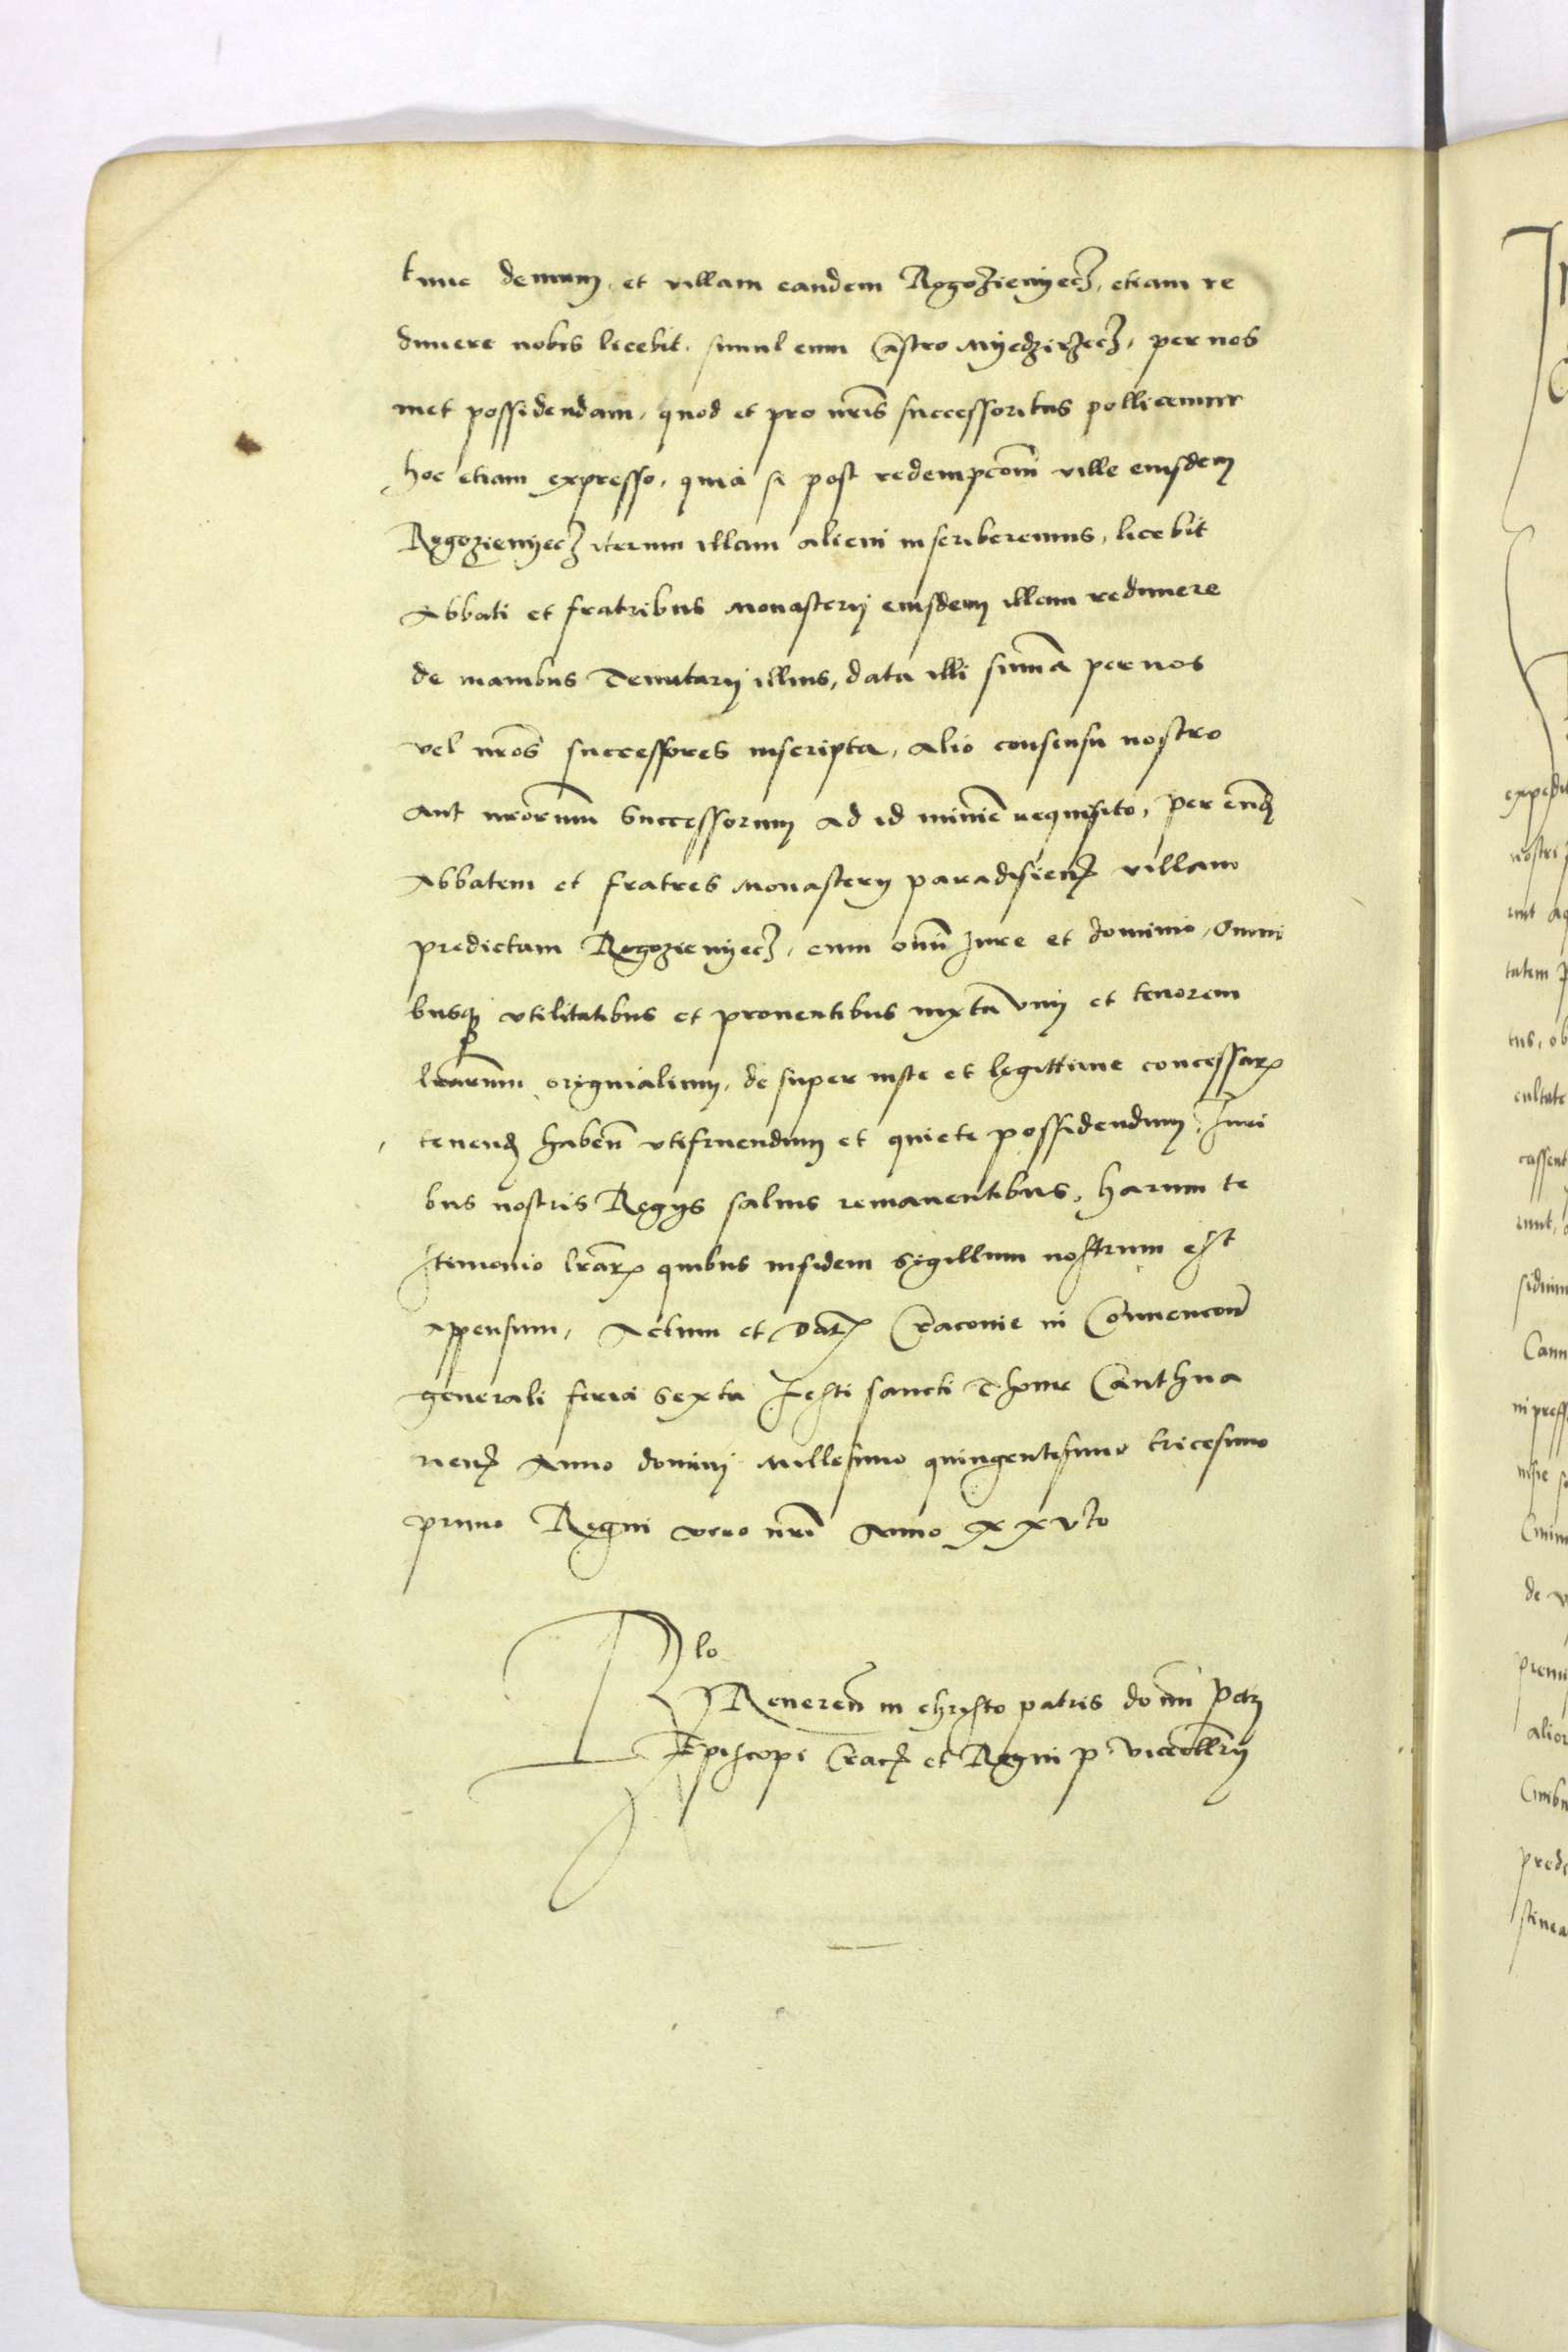 tunc demum et villam eandem Rogozienyecz, etiam re
dimere nobis licebit. simul cum Castro Myedzirzecz, per nos
met possidendam, quod et pro nris successoribus pollicemur
hoc etiam expresso, quia si post redempcom ville eiusdem
Rogozienyecz iterum illam alicui inscriberemus, licebit
Abbati et fratribus Monasterij eiusdem illam redimere
de manibus Tenutarij illius, data illi summa per nos
vel nros successores inscripta, alio consensu nostro
aut nrorum Successorum ad id minime requisito, per eund
Abbatem et fratres Monasterij paradisien villam
predictam Rogozienyecz, cum omni Jure et dominio, Omni
busq utilitatibus et proventibus iuxta vim et tenorem
lrarum originalium, de super iuste et legittime concessar
tenend haben utifruendum et quiete possidendum, Juri
bus nostris Regijs salvis remanentibus, harum te
stimonio lrar quibus insidem Sigillum nostrum est
appensum, Actum et Dat Cracovie in Convencone
generali feria Sexta Festi Sancti Thome Canthua
rien Anno domini Millesimo quingentesimo tricesimo
primo Regni vero nri Anno xxvto
Rlo
Reveren in christo patris domi Petri
Episcopi Crac et Regni p Vicecllrij